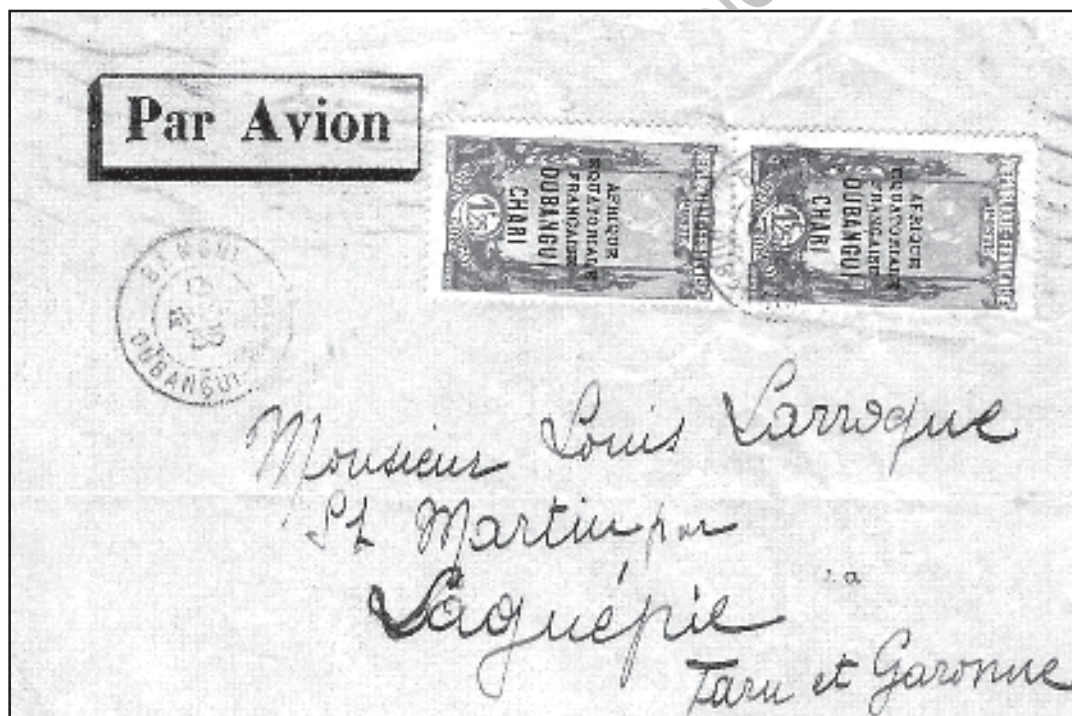 Par Avion
AFRIQUE
EQUATORIALE
FRANÇAISE
OUBANGUI
CHARI
1F25
POSTES
AFRIQUE
EQUATORIALE
FRANÇAISE
OUBANGUI
CHARI
1F25
POSTES
BANGUI
OUBANGUI
Monsieur Louis Larroque
St Martin par
Laguépie
Tarn et Garonne